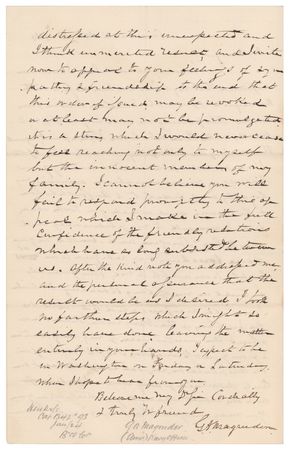 distressed at this unexpected and
I think unmerited result, and I write
now to appeal to your feelings of sym
pathy & friendship to the end that
this order of Genl. may be revoked
or at least may not be promulgated
it is a sting which I would never cease
to feel reaching not only to myself
but the innocent members of my
family. I cannot believe you will
fail to respond promptly to this ap
peal which I make in the full
confidence of the friendly relations
which have so long subsisted between
us. After the kind note you addressed me,
and the personal assurance that the
result would be as I desired I took
no farther steps which I might so
easily have done leaving the matter
entirely in your hands. I expect to be
in Washington on Friday or Saturday
when I hope to hear from you.
Believe me my Dr Genl Cordially
& truly yr friend
G A Magruder
G A Magruder